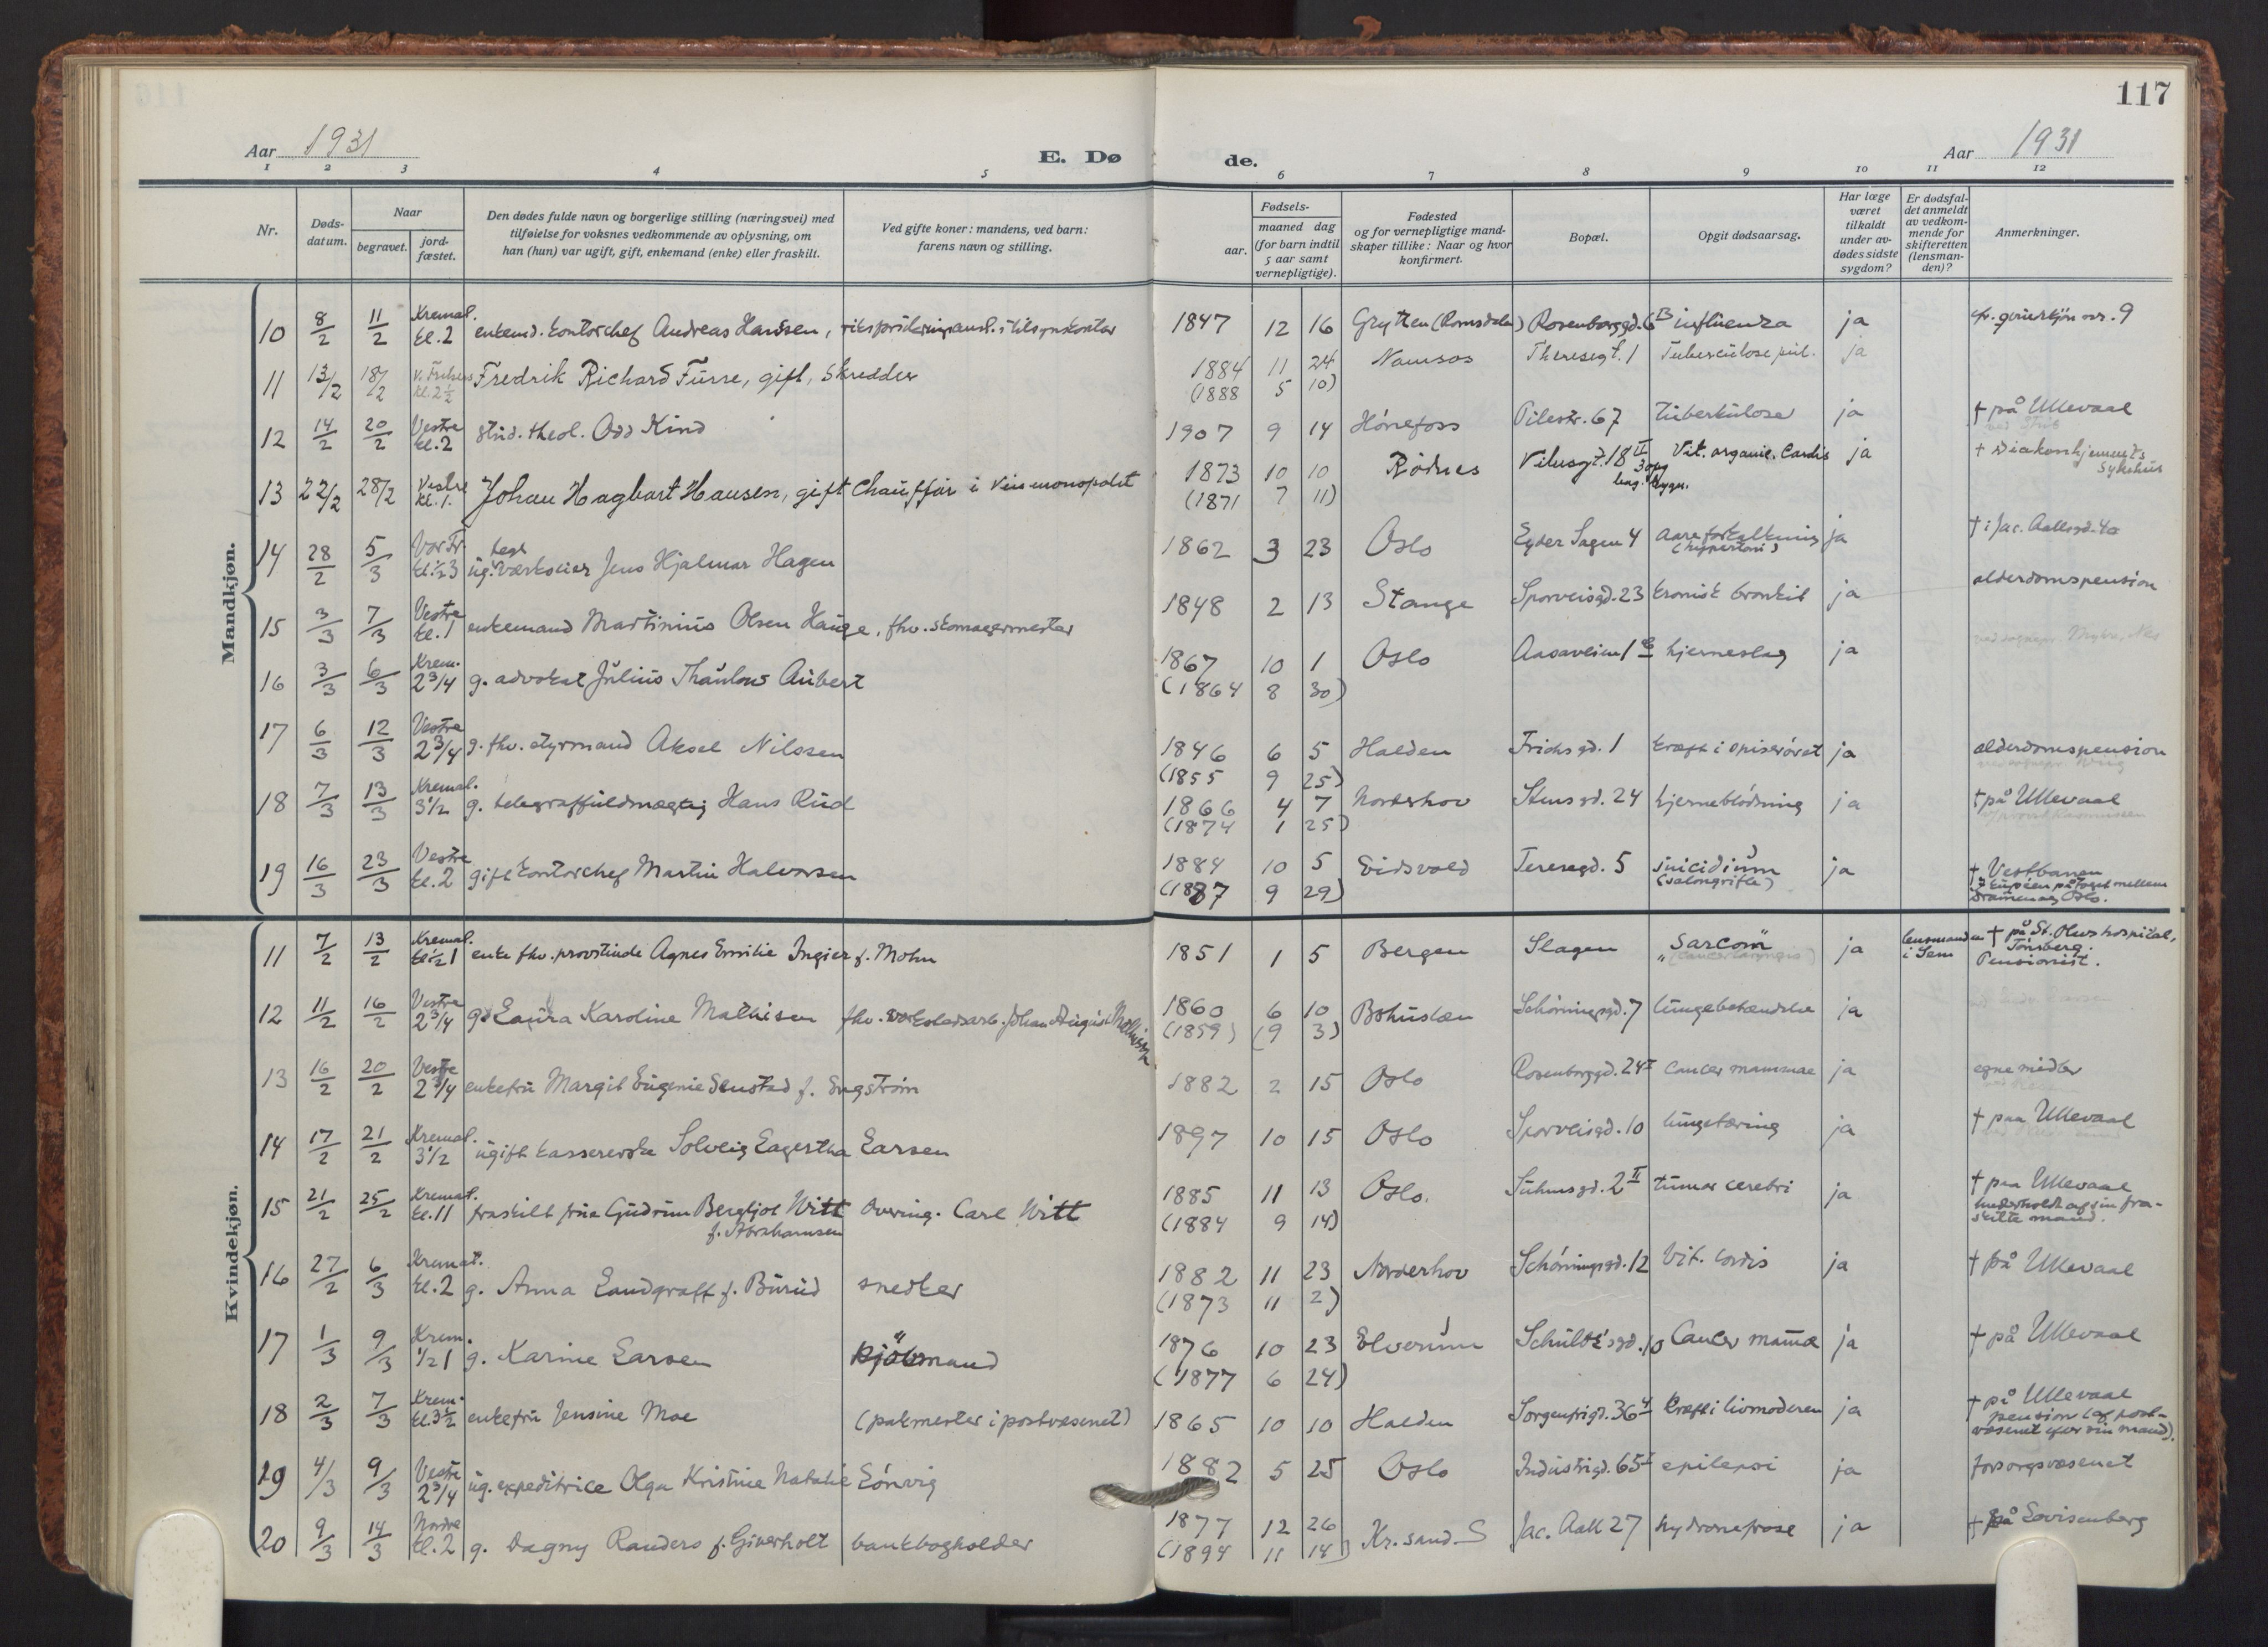 117
Aar 1931
E. Dø de.
Aar 1931
1 2 3 4 5 6 7 8 9 10 11 12
Nr.
Døds-
datum.
Naar
begravet.
jord-
fæstet.
Den dødes fulde navn og borgerlige stilling (næringsvei) med
tilføielse for voksnes vedkommende av oplysning, om
han (hun) var ugift, gift, enkemand (enke) eller fraskilt.
Ved gifte koner: mandens, ved barn:
farens navn og stilling.
Fødsels-
aar.
maaned dag
(for barn indtil
5 aar samt
vernepligtige).
Fødested
og for vernepligtige mand-
skaper tillike: Naar og hvor
konfirmert.
Bopæl.
Opgit dødsaarsag.
Har læge
været
tilkaldt
under av-
dødes sidste
sygdom?
Er dødsfal-
det anmeldt
av vedkom-
mende for
skifteretten
(lensman-
den)?
Anmerkninger.
Mandkjøn.
10 8/2 11/2 Kremat. kl. 2 enkemd. kontorchef Andreas Hansen, 1847 12 16 Grytten (Romsdalen) Rosenborggd. 6 B influenza ja
11 13/2 18/2 kl. 2 1/2 Fredrik Richard Furre, gift, Skredder 1884 11 24 Namsos Theresegt. 1 Tuberculose pul. ja
(1888 5 10)
12 14/2 20/2 Vestre kl. 2 stud. theol. Odd Kind 1907 9 14 Hönefoss Pilestr. 67 tuberkulose ja † på Ullevaal
13 22/2 28/2 Vestre kl. 1. Johan Hagbart Hansen, gift Chauffør i Vinmonopolet 1873 10 10 Rødnes Vibesgt. 18 II Vit. organic. Cardis ja † Diakonhjemmets Sykehus
(1871 7 11)
14 28/2 5/3 Vor Fr. kl. 1/2 3 ug. Værkseier Jens Hjalmar Hagen 1862 3 23 Oslo Eyder Sagen 4 aareforkalkning (hypertoni) ja † i Jac. Aallsgd. 40
15 3/3 7/3 Vestre kl. 1 enkemand Martinius Olsen Hauge, fhv. skomagermester 1848 2 13 Stange Sporveisgd. 23 kronisk bronkit ja alderdomspension
16 3/3 6/3 Krem. 2 3/4 g. advokat Julius Thaulow Aubert 1867 10 1 Oslo Aasaveien 18 hjerneslag ja
(1864 8 30)
17 6/3 12/3 Vestre 2 3/4 g. fhv. styrmand Aksel Nilssen 1846 6 5 Halden Frichsgd. 1 kræft i spiserøret ja alderdomspension
(1855 9 25)
18 7/3 13/3 Kremat. 3 1/2 g. telegraffuldmægtig Hans Rud 1866 4 7 Norderhov Stensgd. 24 hjerneblödning ja † på Ullevaal
(1874 1 25)
19 16/3 23/3 Vestre kl. 2 gift kontorchef Martin Halvorsen 1884 10 5 Eidsvold Teresegd. 5 suicidium (salongrifle) ja † Vestbanen
i kupéen på toget mellem
Drammen og Oslo.
(1887 9 29)
Kvindekjøn.
11 7/2 13/2 Kremat. kl. 1/2 1 enke fhv. provstinde Agnes Emilie Ingier f. Mohn 1851 1 5 Bergen Slagen "Sarcom" ja lensmanden i Sem † på St. Olavs hospital,
Tönsberg.
Pensionist.
12 11/2 16/2 Vestre 2 3/4 g. Laura Karoline Mathisen fhv. verkstedsarb. Johan August Mathisen 1860 6 10 Bohuslen Schöningsgd. 7 lungebetændelse ja
(1859) (9 3)
13 16/2 20/2 Vestre 2 3/4 enkefru Margit Eugenie Senstad f. Engström 1882 2 15 Oslo Rosenborggd. 24 I cancer mammae ja egne midler
14 17/2 21/2 Kremat. 3 1/2 ugift kassererske Solveig Lagertha Larsen 1897 10 15 Oslo Sporveisgd. 10 lungetæring ja † paa Ullevaal
15 21/2 25/2 Kremat. kl. 11 fraskilt frue Gudrun Bergljot Witt f. Abrahamsen Overing. Carl Witt 1885 11 13 Oslo. Suhmsgd. 2 II tumor cerebri ja † paa Ullevaal
Underholdt af sin fra-
skilte mand.
(1884 9 14)
16 27/2 6/3 Kremat. kl. 2 g. Anna Landgraff f. Burud snedker 1882 11 23 Norderhov Schöningsgd. 12 Vit. cordis ja † på Ullevaal
(1873 11 2)
17 1/3 9/3 Krem. 1/2 1 g. Karine Larsen kjöbmand 1876 10 23 Elverum Schultz'sgd. 10 Cancer mamma ja † på Ullevaal
(1877 6 24)
18 2/3 7/3 Krem. kl. 3 1/2 enkefru Jensine Moe (pakmester i postvæsenet) 1865 10 10 Halden Sorgenfrigd. 36 4 kræft i livmoderen ja † på Ullevaal
pension (af post-
væsenet efter sin mand).
19 4/3 9/3 Vestre 2 3/4 ug. expeditrice Olga Kristine Natalie Lönvig 1882 5 25 Oslo Industrigd. 65 I epilepsi ja forsorgsvæsenet
20 9/3 14/3 Nordre kl. 2 g. Dagny Randers f. Giverholt bankbogholder 1877 12 26 Kr. sand. S Jac. Aall 27 hydronefrose ja † på Lovisenberg
(1894 11 14)